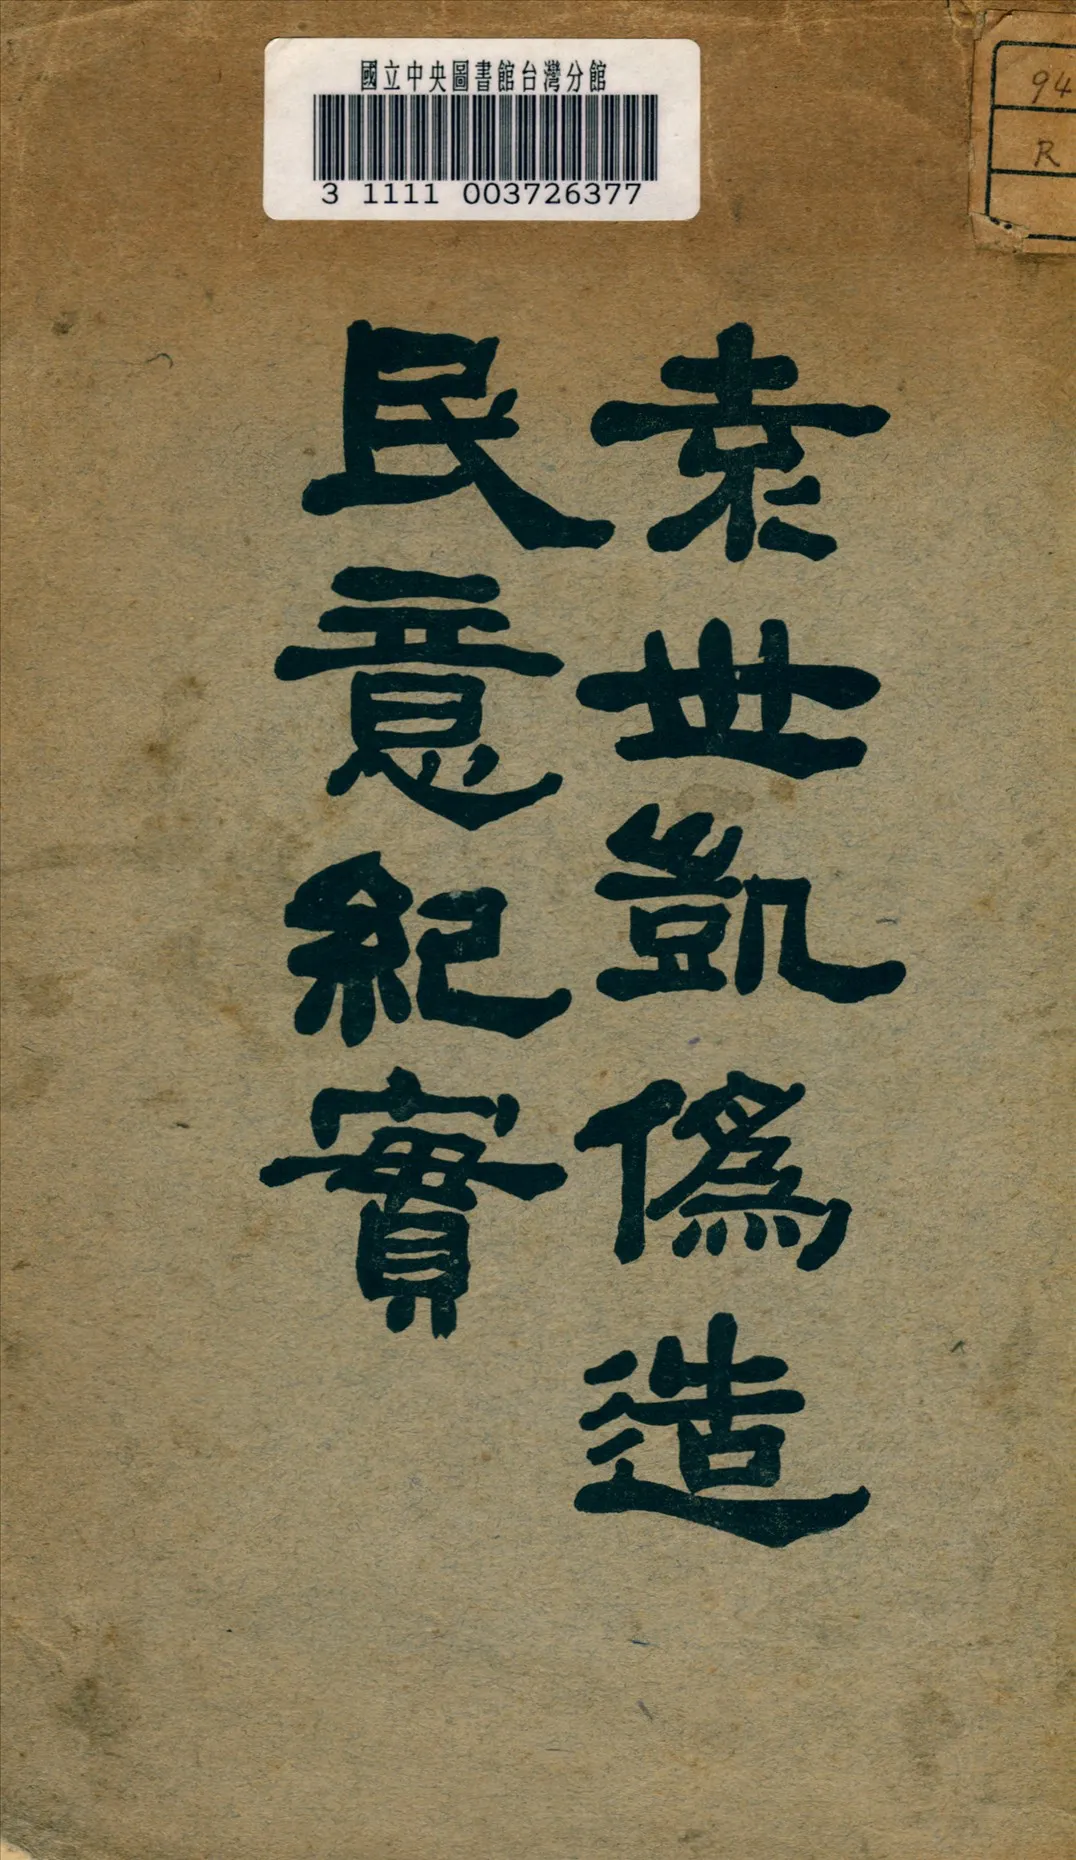 國立中央圖書館台灣分館
3 1111 003726377
94
R
袁世凱偽造
民意紀實